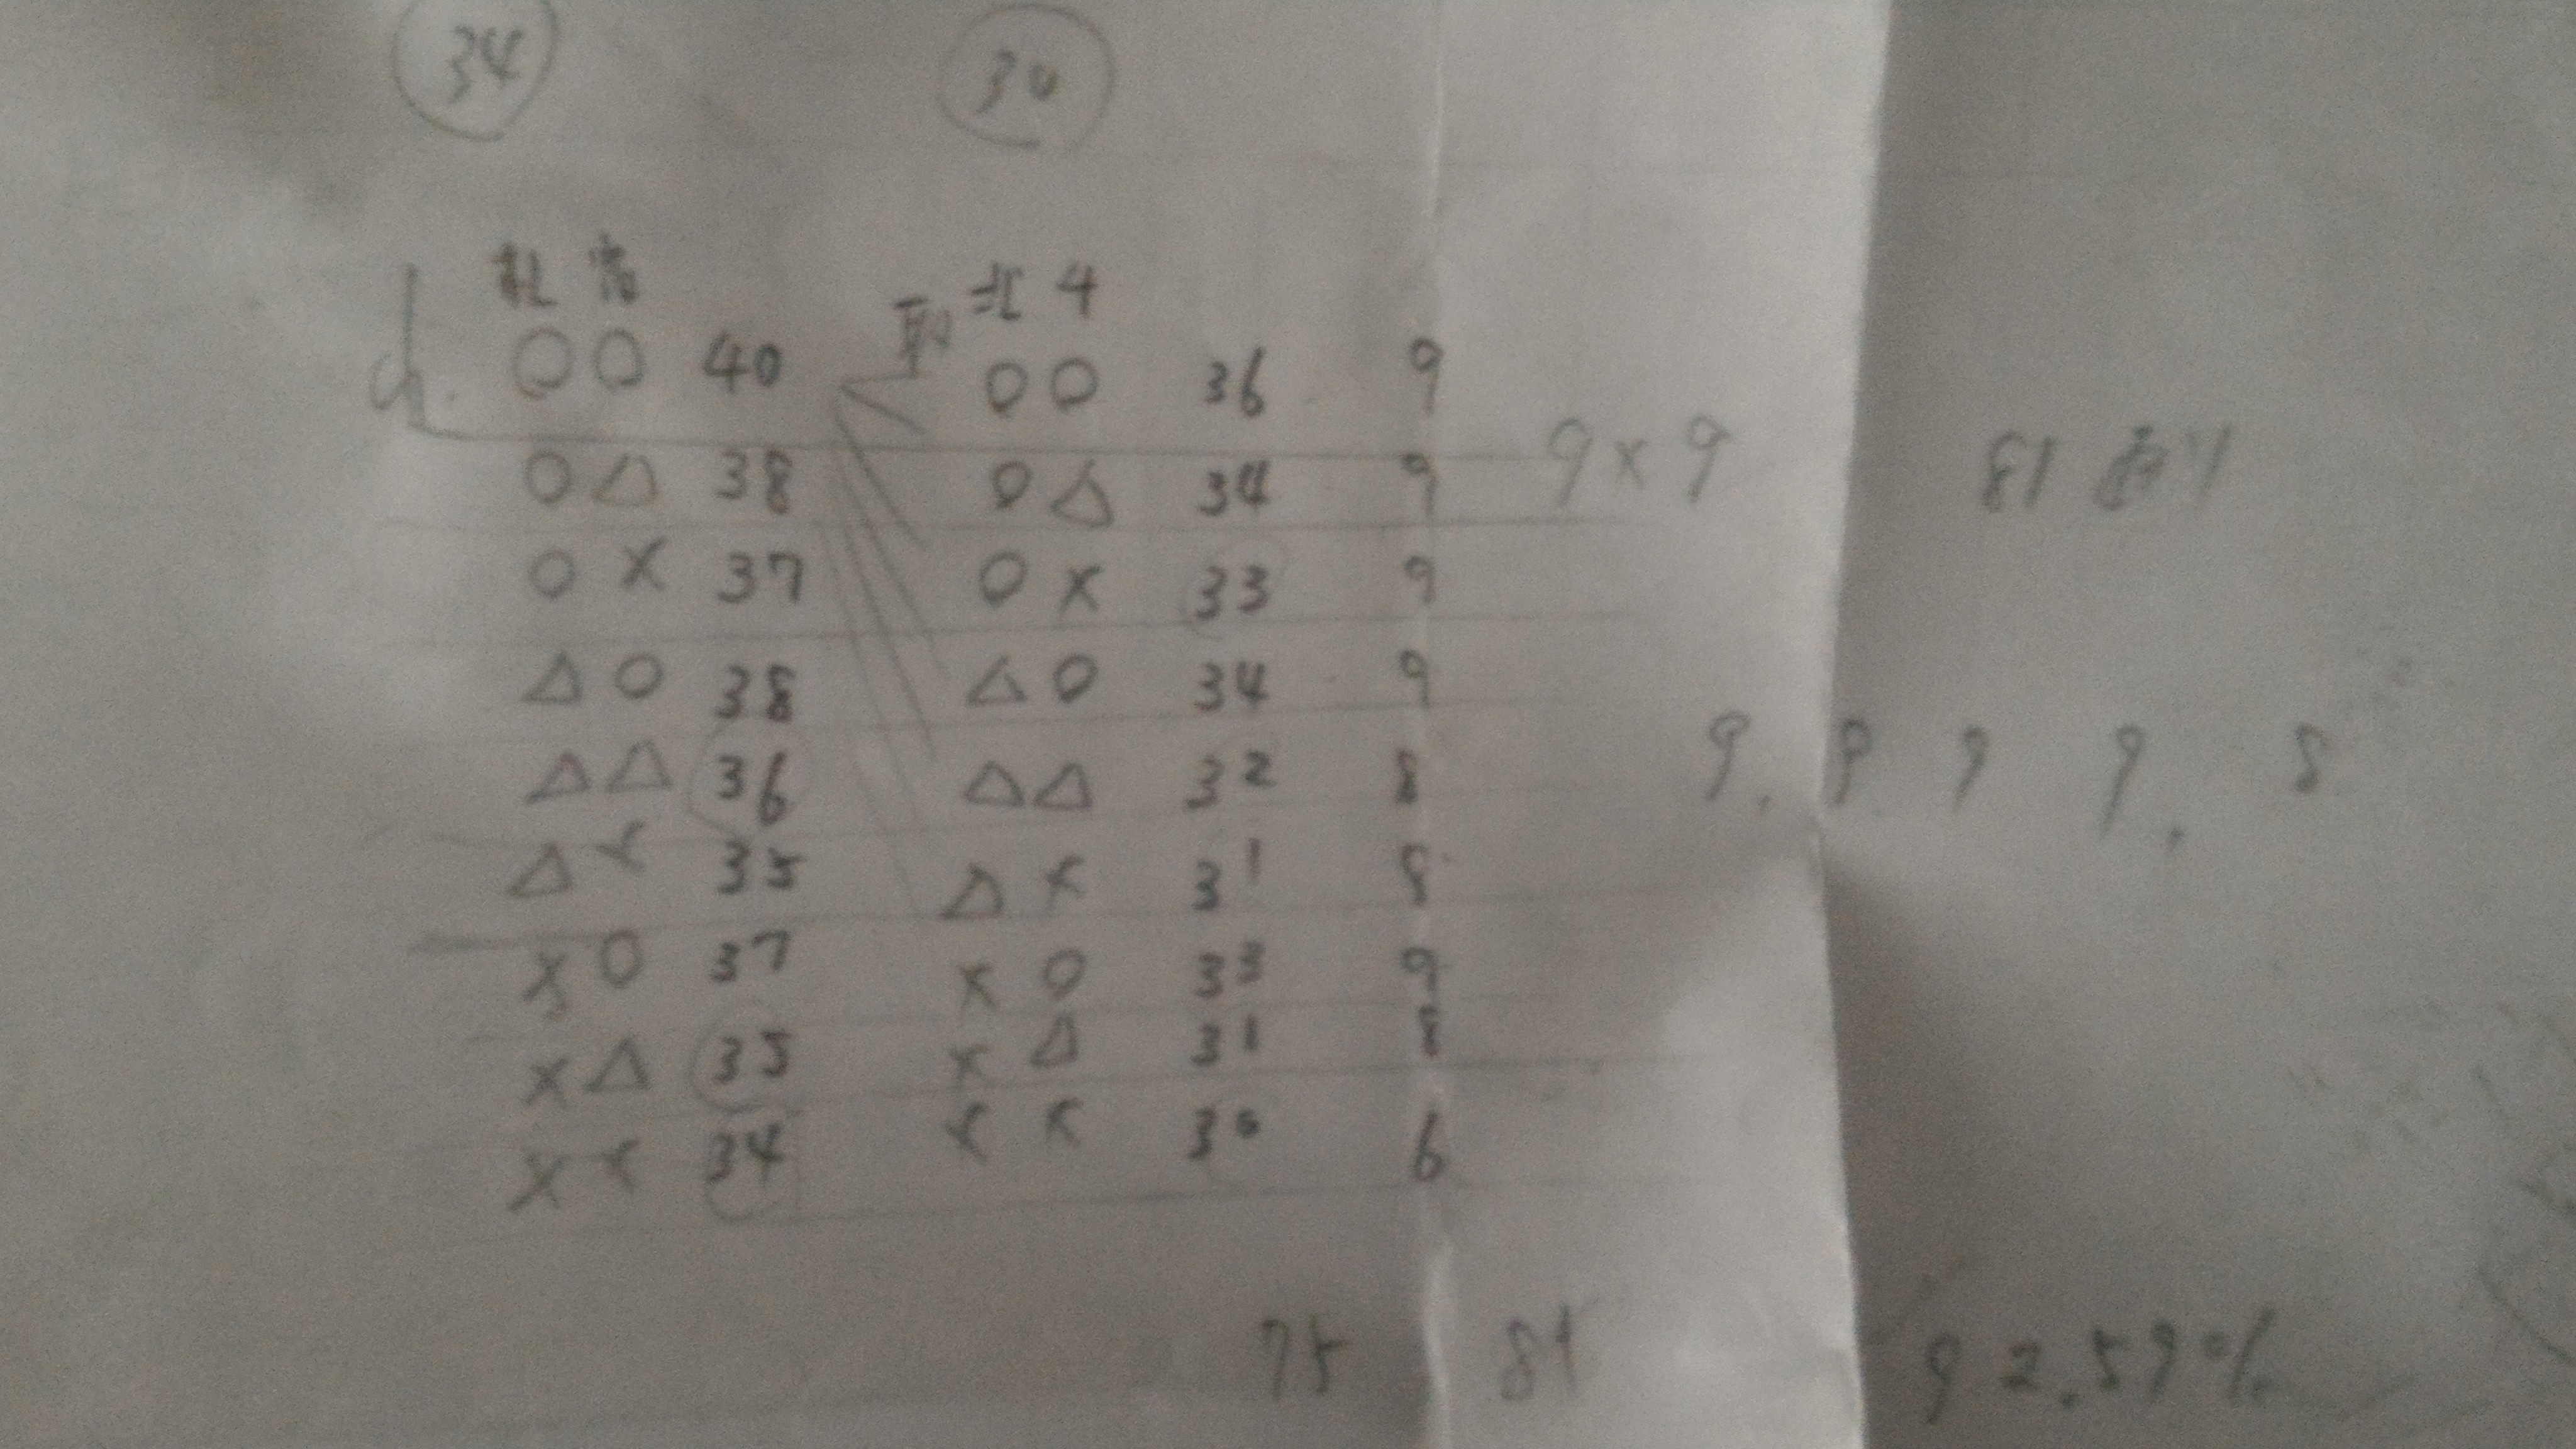 34 30
札 宮
取 北 4
○○ 40 ○○ 36 9
9×9 81通り
○△ 38 ○△ 34 9
○× 37 ○× 33 9
△○ 38 △○ 34 9
9. 9 9 9. 8
△△ 36 △△ 32 8
△× 35 △× 31 8
×○ 37 ×○ 33 9
×△ 35 ×△ 31 8
×× 34 ×× 30 6
75 81 92.59%